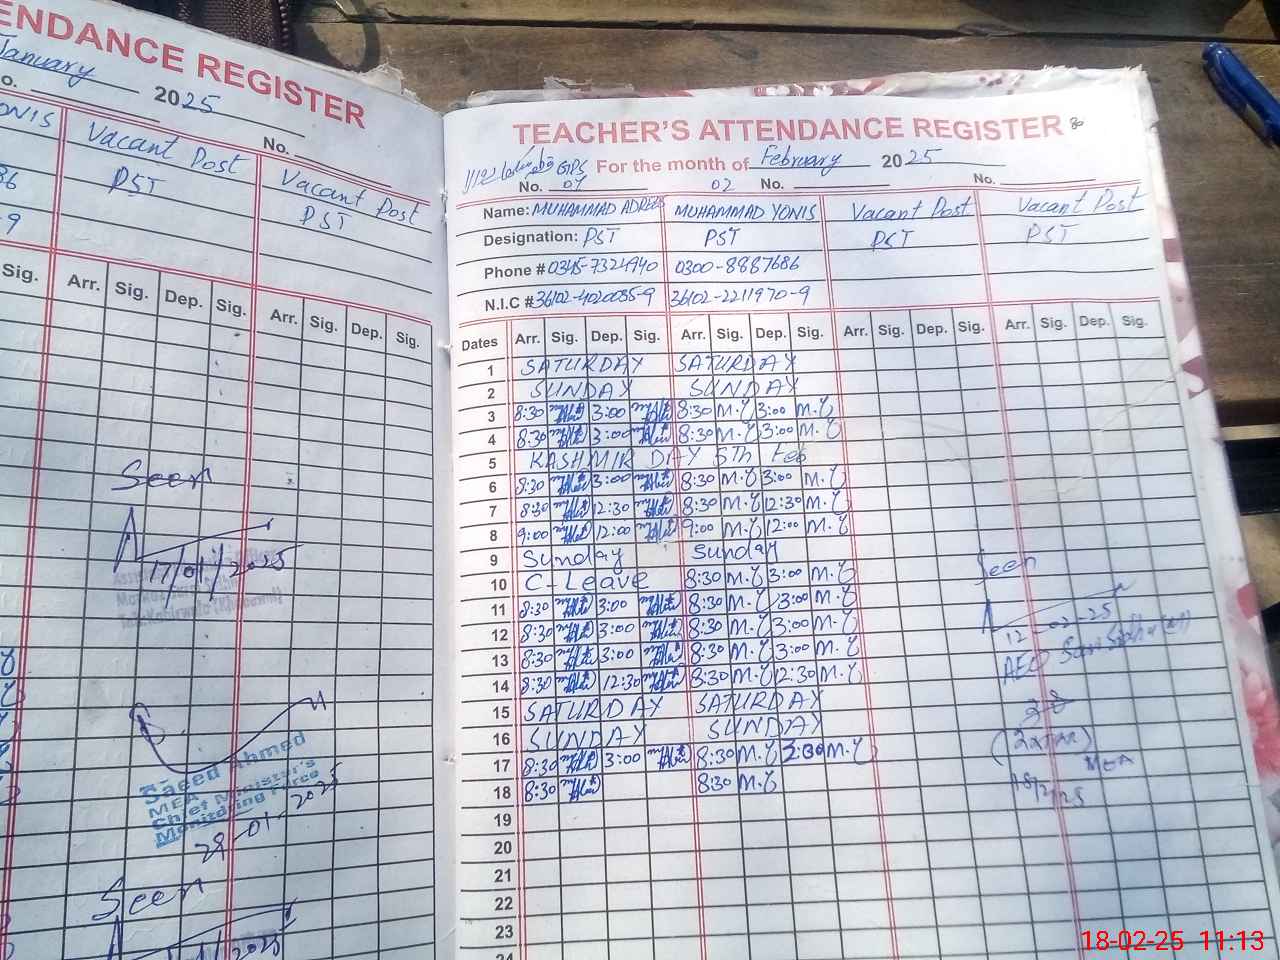 ENDANCE REGISTER
January 2025
No.
No.
ONIS Vacant Post Vacant Post
PST PST
86
9
Sig. Arr. Sig. Dep. Sig. Arr. Sig. Dep. Sig.
Seen
17/01/2025
Saeed Ahmed
MEA
Chief Minister's
Monitoring Force
29-01-2025
Seen
TEACHER'S ATTENDANCE REGISTER
GPS For the month of February 2025
No. 01 02 No. No.
Name: MUHAMMAD ADREES MUHAMMAD YONIS Vacant Post Vacant Post
Designation: PST PST PST PST
Phone # 0345-7324940 0300-8887686
N.I.C # 36102-4020035-9 36102-2211970-9
Dates Arr. Sig. Dep. Sig. Arr. Sig. Dep. Sig. Arr. Sig. Dep. Sig. Arr. Sig. Dep. Sig.
1 SATURDAY SATURDAY
2 SUNDAY SUNDAY
3 8:30 3:00 8:30 M.Y 3:00 M.Y
4 8:30 3:00 8:30 M.Y 3:00 M.Y
5 KASHMIR DAY 5th Feb
6 8:30 3:00 8:30 M.Y 3:00 M.Y
7 8:30 12:30 8:30 M.Y 12:30 M.Y
8 9:00 12:00 9:00 M.Y 12:00 M.Y
9 Sunday Sunday
10 C-Leave 8:30 M.Y 3:00 M.Y
11 8:30 3:00 8:30 M.Y 3:00 M.Y
12 8:30 3:00 8:30 M.Y 3:00 M.Y
13 8:30 3:00 8:30 M.Y 3:00 M.Y
14 8:30 12:30 8:30 M.Y 12:30 M.Y
15 SATURDAY SATURDAY
16 SUNDAY SUNDAY
17 8:30 3:00 8:30 M.Y 3:00 M.Y
18 8:30 8:30 M.Y
19
20
21
22
23
24
Seen
12-02-25
AEO
MEA
18/2/25
18-02-25 11:13